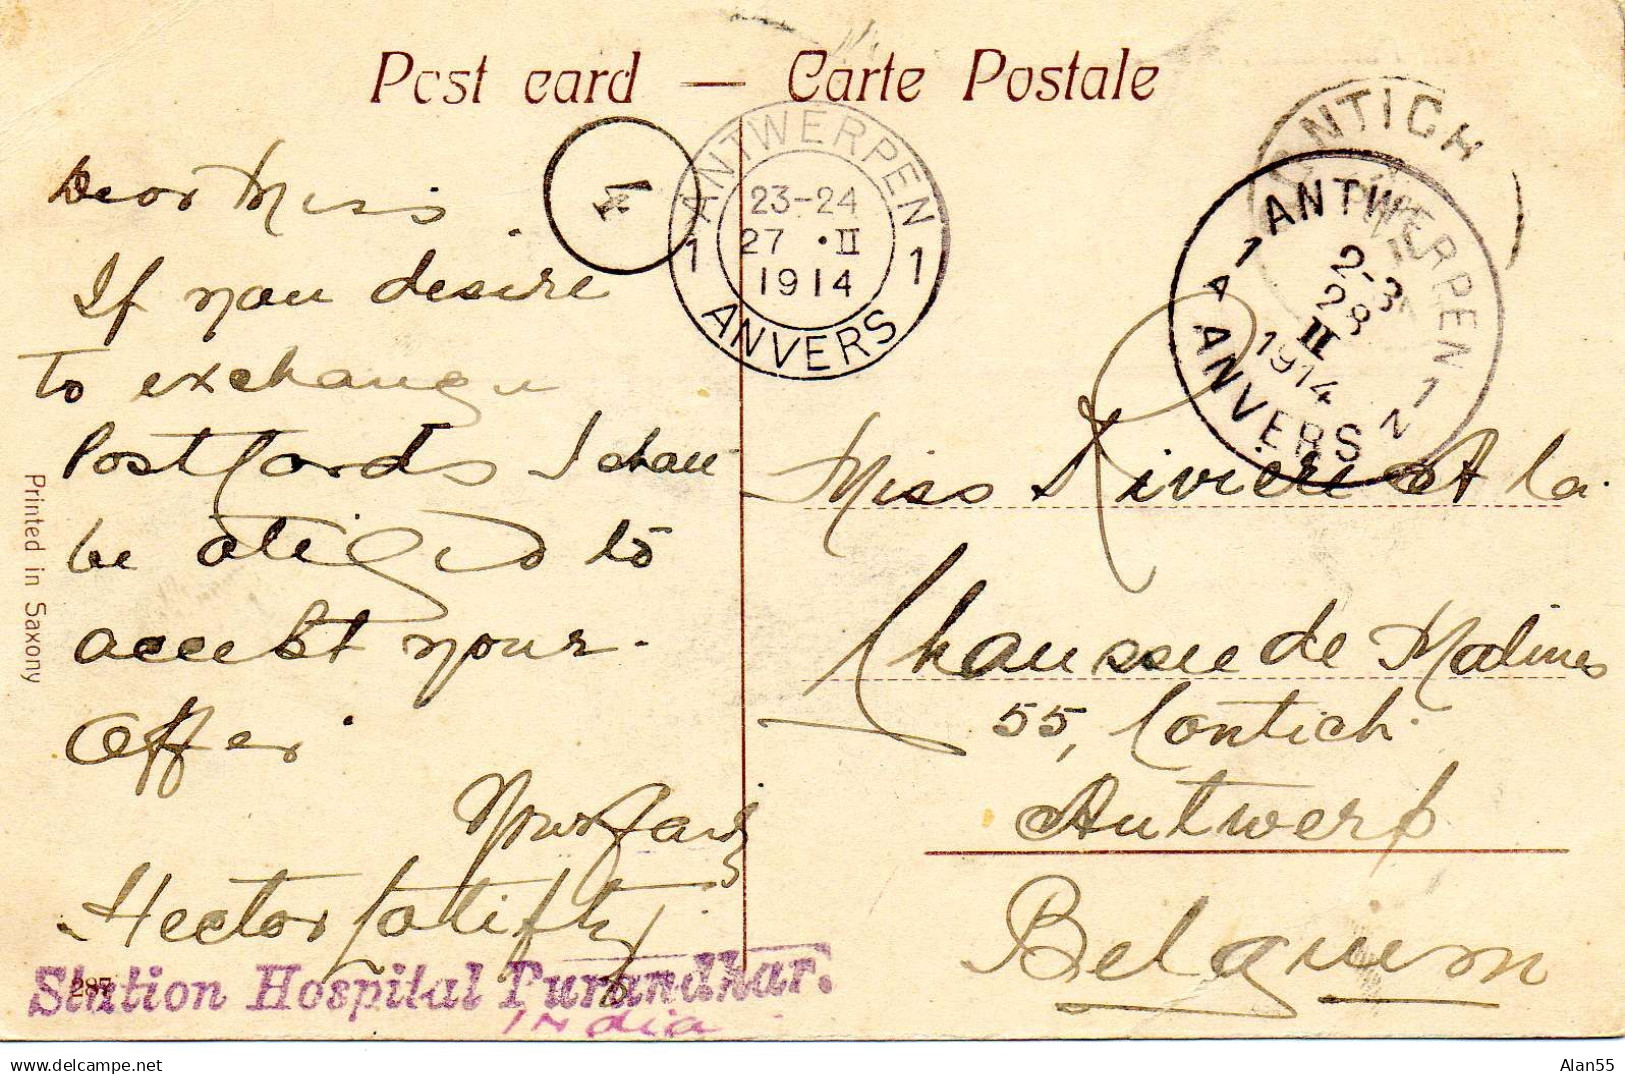 Post card — Carte Postale
Dear Miss
If you desire
to exchange
PostCards I shall
be obliged to
accebt your
offer
Yours
Hector
Station Hospital Purandhar.
India
287
Printed in Saxony
1
ANTWERPEN
23-24
27 • II
1914
1 1
ANVERS
ANTICH
ANTWERPEN
2-3
28
II
1914
1 A 1 N
ANVERS
Miss Riviere et la
Chaussee de Malines
55, Contich
Antwerp
Belguim
Alan55